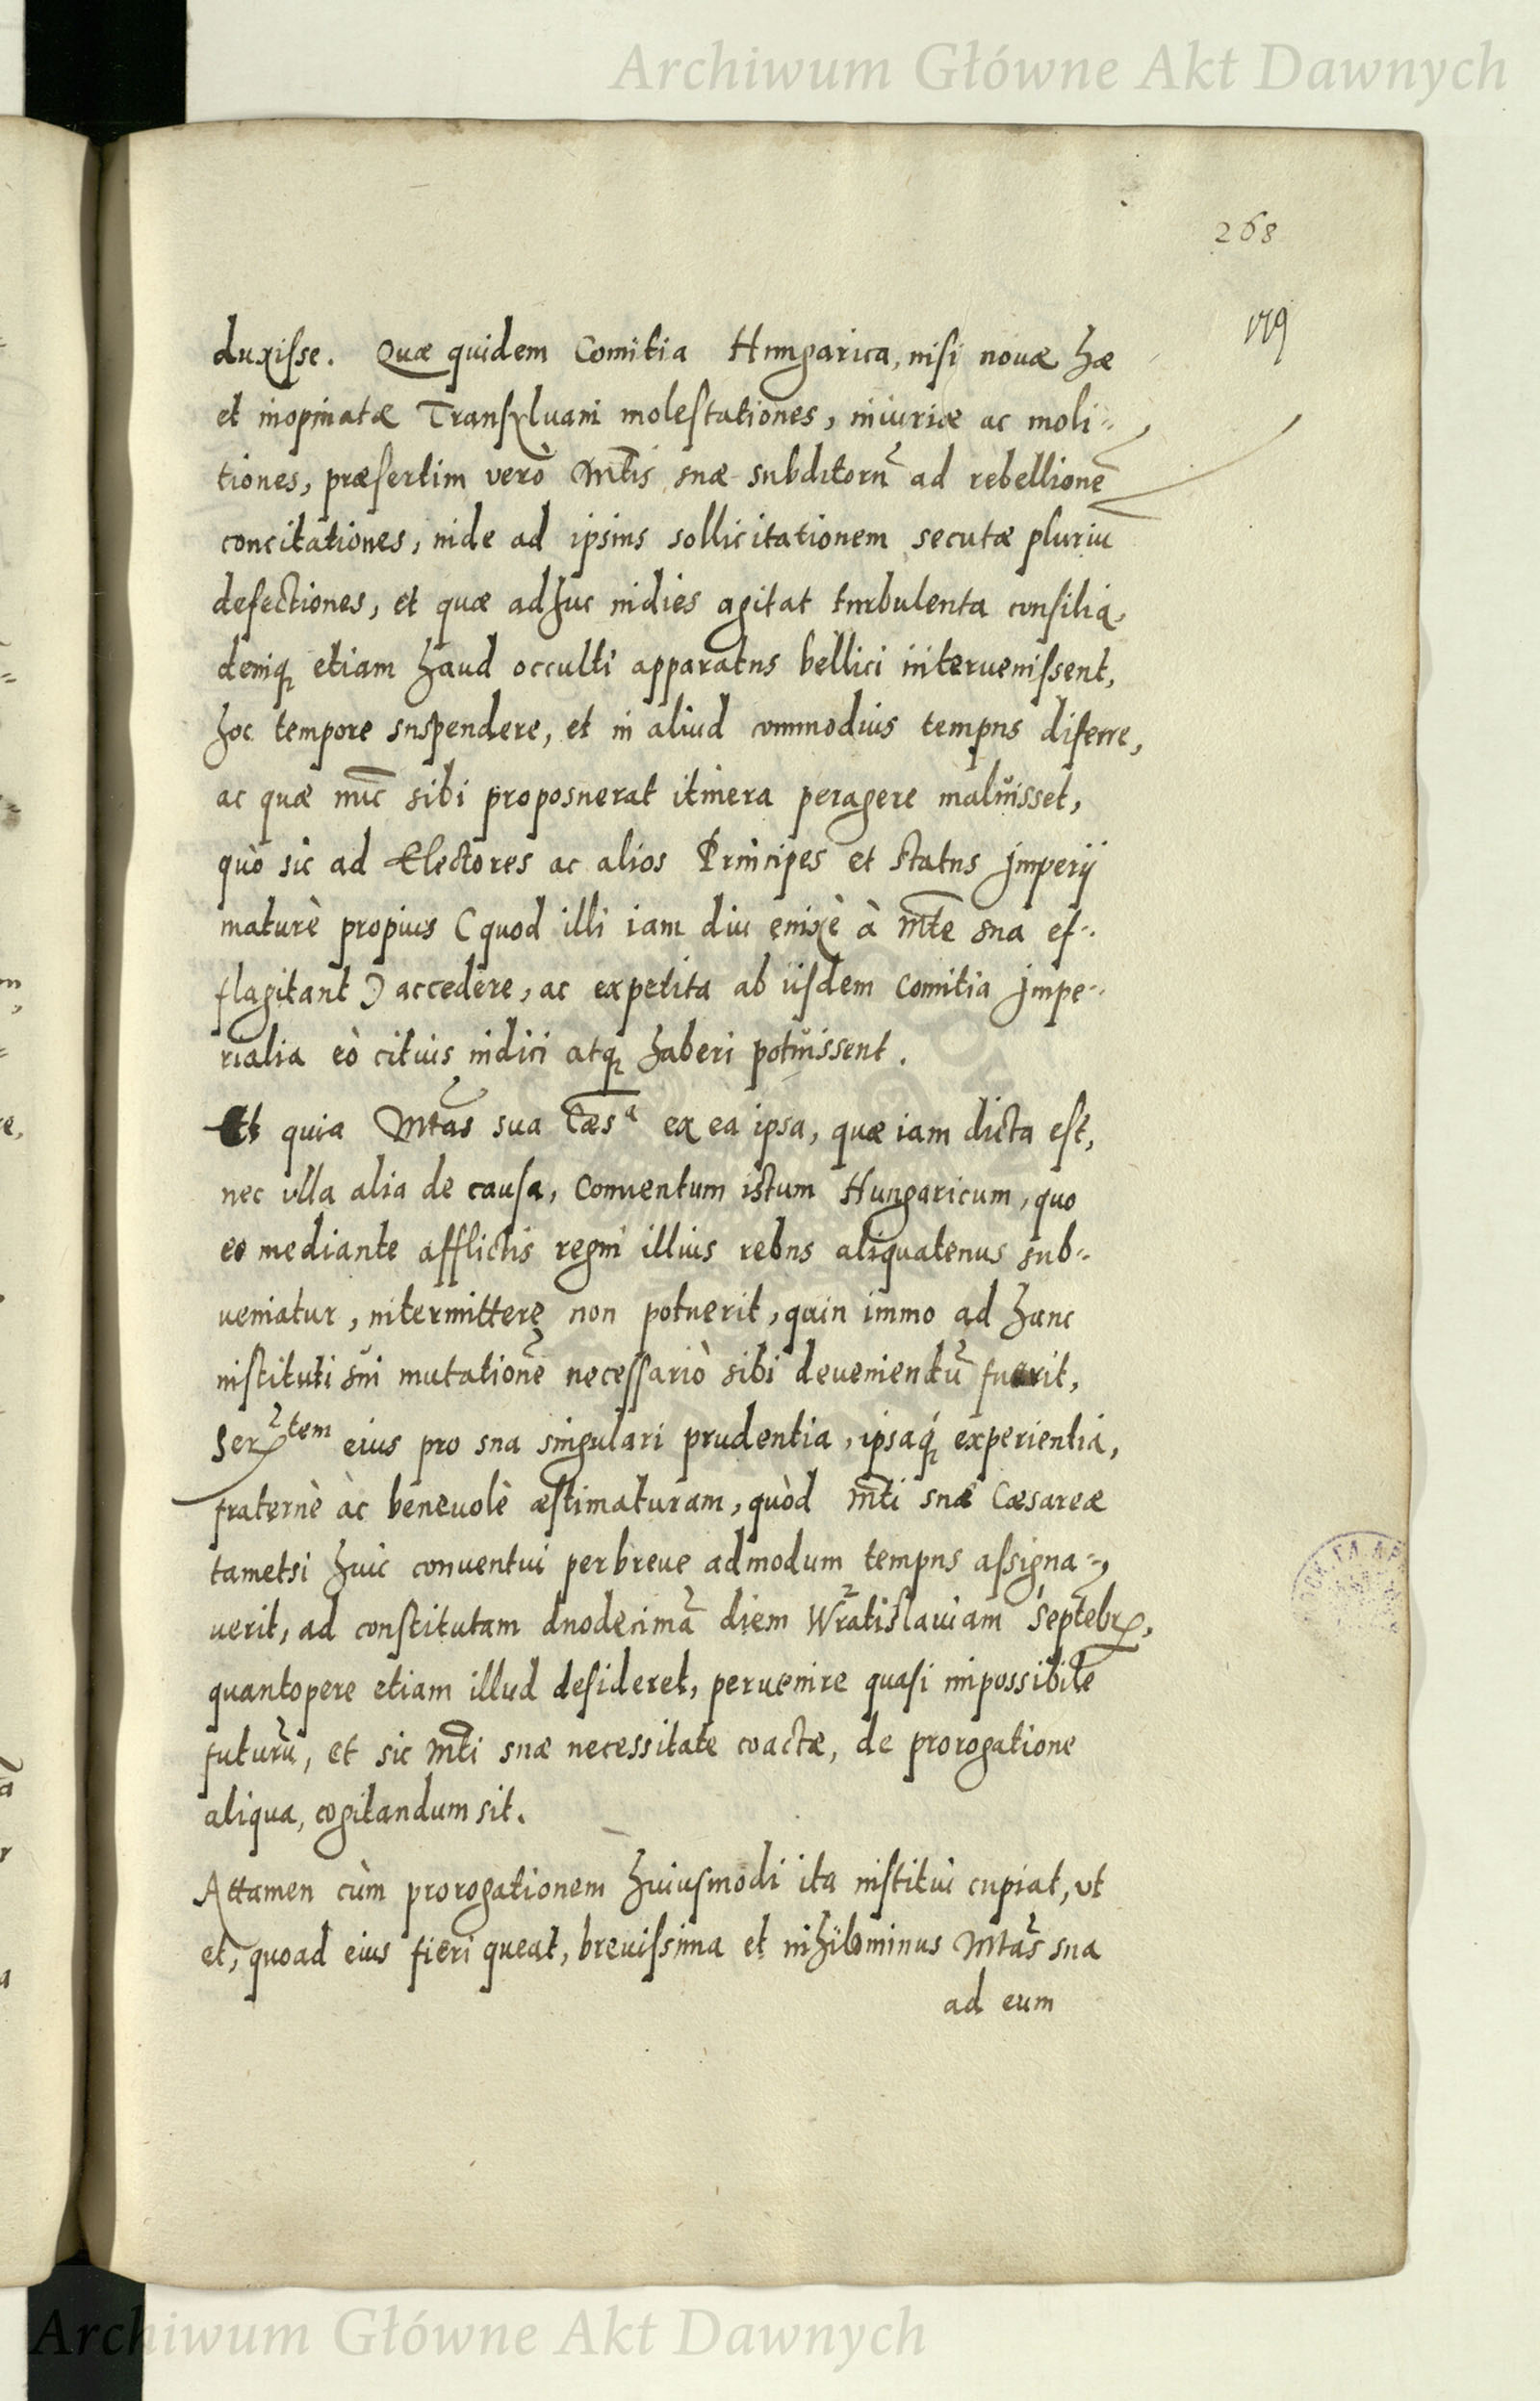 Archiwum Główne Akt Dawnych
268
179
duxisse. Quæ quidem Comitia Hungarica, nisi nouæ hæ
et inopinatæ Transyluani molestationes, iniuriæ ac moli=
tiones, præsertim verò Mtis suæ subditorũ ad rebellionẽ
concitationes, inde ad ipsius sollicitationem secutæ pluriũ
defectiones, et quæ adhuc indies agitat turbulenta consilia,
deniq etiam haud occulti apparatus bellici interuenissent,
hoc tempore suspendere, et in aliud commodius tempus diferre,
ac quæ nũc sibi proposuerat itinera peragere maluisset,
quò sic ad Electores ac alios Principes et status Jmperij
maturè propius (quod illi iam diu enixè à Mte sua ef=
flagitant) accedere, ac expetita ab iisdem Comitia Jmpe=
rialia eò citius indici atq haberi potuissent.
Et quia Mtas sua Cæs.a ex ea ipsa, quæ iam dicta est,
nec vlla alia de causa, Conuentum istum Hungaricum, quo
eo mediante afflictis regni illius rebus aliquatenus sub=
ueniatur, intermittere non potuerit, quin immo ad hanc
instituti sui mutationẽ necessariò sibi deueniendũ fuerit,
Sertem eius pro sua singulari prudentia, ipsaq experientia,
fraternè ac beneuolè æstimaturam, quòd Mti suæ Cæsareæ
tametsi huic conuentui perbreue admodum tempus assigna=
uerit, ad constitutam duodecimã diem Wratislauiam Septebr,
quantopere etiam illud desideret, peruenire quasi impossibile
futurũ, et sic Mti suæ necessitate coactæ, de prorogatione
aliqua, cogitandum sit.
Attamen cùm prorogationem huiusmodi ita institui cupiat, vt
et, quoad eius fieri queat, breuissima et nihilominus Mtas sua
ad eum
Archiwum Główne Akt Dawnych